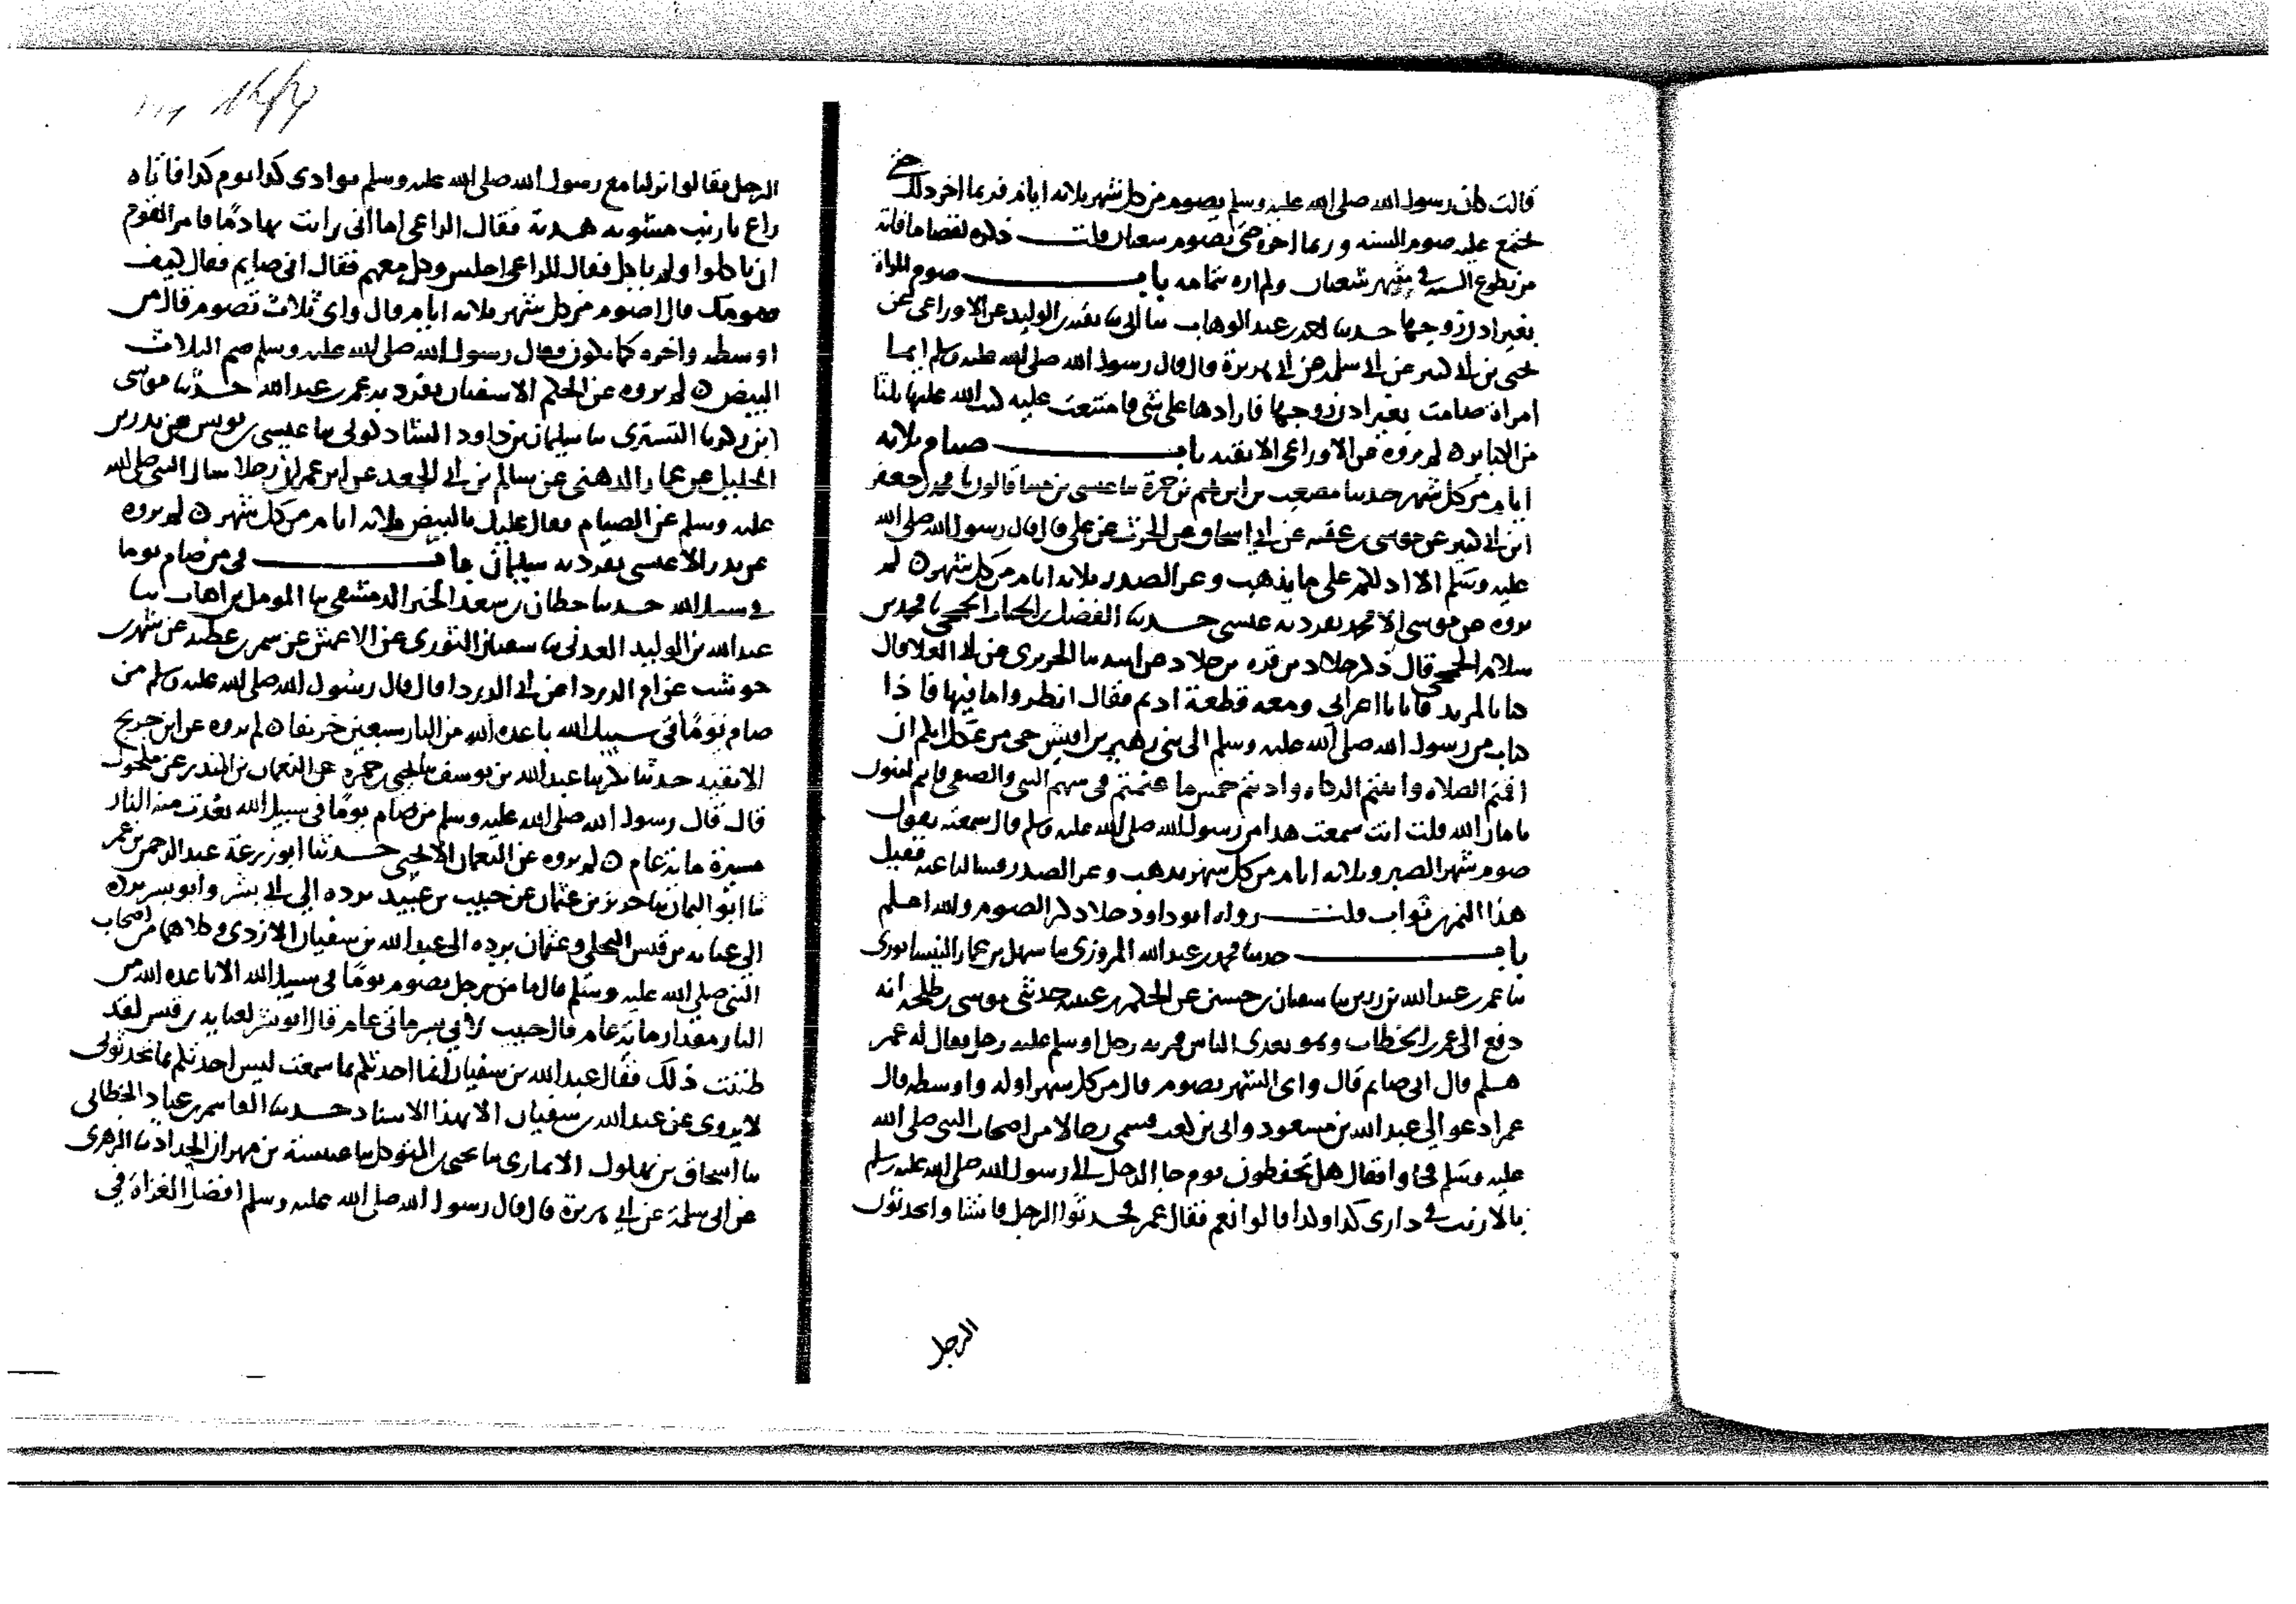 قالت كان رسول الله صلى الله عليه وسلم يصوم من كل شهر ثلاثة ايام فربما اخر ذلك حتى
يجتمع عليه صوم السنه وربما اخره حتى يصوم شعبان قلت ذكره لقضا ما فاته
من تطوع السنه في شهر شعبان ولم اره بتمامه باب صوم المراة
بغير اذن زوجها حدثنا احمد بن عبد الوهاب نا ابي نا بقية بن الوليد عن الاوزاعي عن
يحيى بن ابي كثير عن ابي سلمة عن ابي هريرة قال قال رسول الله صلى الله عليه وسلم ايما
امراة صامت بغير اذن زوجها فارادها على شي فامتنعت عليه كتب الله عليها ثلثا
من الكبائر ه لم يروه عن الاوزاعي الا بقيه باب صيام ثلاثه
ايام من كل شهر حدثنا مصعب بن ابرهيم بن حمزة نا عيسى بن مينا قالون نا محمد بن جعفر
ابن ابي كثير عن موسى بن عقبه عن ابي اسحاق عن الحرث عن علي قال قال رسول الله صلى الله
عليه وسلم الا ادلكم على ما يذهب وحر الصدر ثلاثه ايام من كل شهر ه لم
يروه عن موسى الا محمد تفرد به عيسى حدثنا الفضل بن الحباب الجمحي نا محمد بن
سلام الجمحي قال ذكر خلاد بن قره بن خلاد عن ابيه نا الجريري عن ابي العلا قال
كنا بالمربد فاتانا اعرابي ومعه قطعة اديم فقال انظروا ما فيها فاذا
كتاب من رسول الله صلى الله عليه وسلم الى بني زهير بن اقيش حي من عكل انكم ان
اقمتم الصلاه واتيتم الزكاه واديتم خمس ما غنمتم في سهم النبي والصفي فانتم امنون
بامان الله قلت انت سمعت هذا من رسول الله صلى الله عليه وسلم قال سمعته يقول
صوم شهر الصبر وثلاثه ايام من كل شهر يذهب وحر الصدر فسالنا عنه فقيل
هذا النمر بن تواب قلت رواه ابو داود خلا ذكر الصوم والله اعلم
باب حدثنا محمد بن عبد الله المروزي نا سهل بن عمار النيسابوري
نا عمر بن عبد الله بن رزين نا سفيان بن حسين عن الحكم بن عتيبه حدثني موسى بن طلحه انه
دفع الى عمر بن الخطاب وهو يغدي الناس فمر به رجل او سلم عليه رجل فقال له عمر
هلم قال اني صايم قال واي الشهر تصوم قال من كل شهر اوله واوسطه قال
عمر ادعوا لي عبد الله بن مسعود وابي بن كعب فسمى رجالا من اصحاب النبي صلى الله
عليه وسلم فجاوا فقال هل تحفظون يوم جا الرجل الى رسول الله صلى الله عليه وسلم
بالارنب في وادي كذا وكذا قالوا نعم فقال عمر فحدثوا الرجل فانشاوا يحدثون
الرجل
الرجل فقالوا نزلنا مع رسول الله صلى الله عليه وسلم بوادي كذا يوم كذا فاتاه
راع بارنب مشويه هدية فقال الراعي اما اني رايت بها دمًا فامر القوم
ان ياكلوا ولم ياكل فقال للراعي اجلس وكل معهم فقال اني صايم فقال كيف
صومك قال اصوم من كل شهر ثلاثه ايام قال واي ثلاث تصوم قال من
اوسطه واخره كما يكون فقال رسول الله صلى الله عليه وسلم صم الثلاث
البيض ه لم يروه عن الحكم الا سفيان تفرد به عمر بن عبد الله حدثنا موسى
ابن زكريا التستري نا سليمان بن داود الشاذكوني نا عيسى بن يونس عن بدر بن
الخليل عن عمار الدهني عن سالم بن ابي الجعد عن ابن عمر ان رجلا سال النبي صلى الله
عليه وسلم عن الصيام فقال عليك بالبيض ثلاثه ايام من كل شهر ه لم يروه
عن بدر الا عيسى تفرد به سليمان باب في من صام يوما
في سبيل الله حدثنا خطاب بن سعد الخير الدمشقي نا المومل بن اهاب نا
عبد الله بن الوليد العدني نا سفيان الثوري عن الاعمش عن سمر بن عطيه عن شهر بن
حوشب عن ام الدردا عن ابي الدردا قال قال رسول الله صلى الله عليه وسلم من
صام يومًا في سبيل الله باعده الله من النار سبعين خريفا ه لم يروه عن ابن جريج
الا بقيه حدثنا بكر نا عبد الله بن يوسف نا يحيى بن حمزه عن النعمان بن المنذر عن مكحول
قال قال رسول الله صلى الله عليه وسلم من صام يومًا في سبيل الله بعدت منه النار
مسيرة مائة عام ه لم يروه عن النعمان الا يحيى حدثنا ابو زرعة عبد الرحمن بن عمر
نا ابو اليمان نا حريز بن عثمان عن حبيب بن عبيد يرده الى ابي بشر وابو بشر يرده
الى عبايه بن قيس البجلي وعثمان يرده الى عبد الله بن سفيان الازدي وكلاهما من اصحاب
النبي صلى الله عليه وسلم قال ما من رجل يصوم يومًا في سبيل الله الا باعده الله من
النار مقدار مائة عام قال حبيب لابي بشر مائتي عام فقال ابو بشر لعبايه بن قيس لقد
ظننت ذلك فقال عبد الله بن سفيان انما احدثكم بما سمعت ليس احدثكم بما تحدثوني
لا يروى عن عبد الله بن سفيان الا بهذا الاسناد حدثنا القاسم بن عباد الخطابي
نا اسحاق بن بهلول الانباري نا يحيى بن المتوكل نا عنبسة بن مهران الحداد نا الزهري
عن ابي سلمة عن ابي هريرة قال قال رسول الله صلى الله عليه وسلم افضل الغزاة في